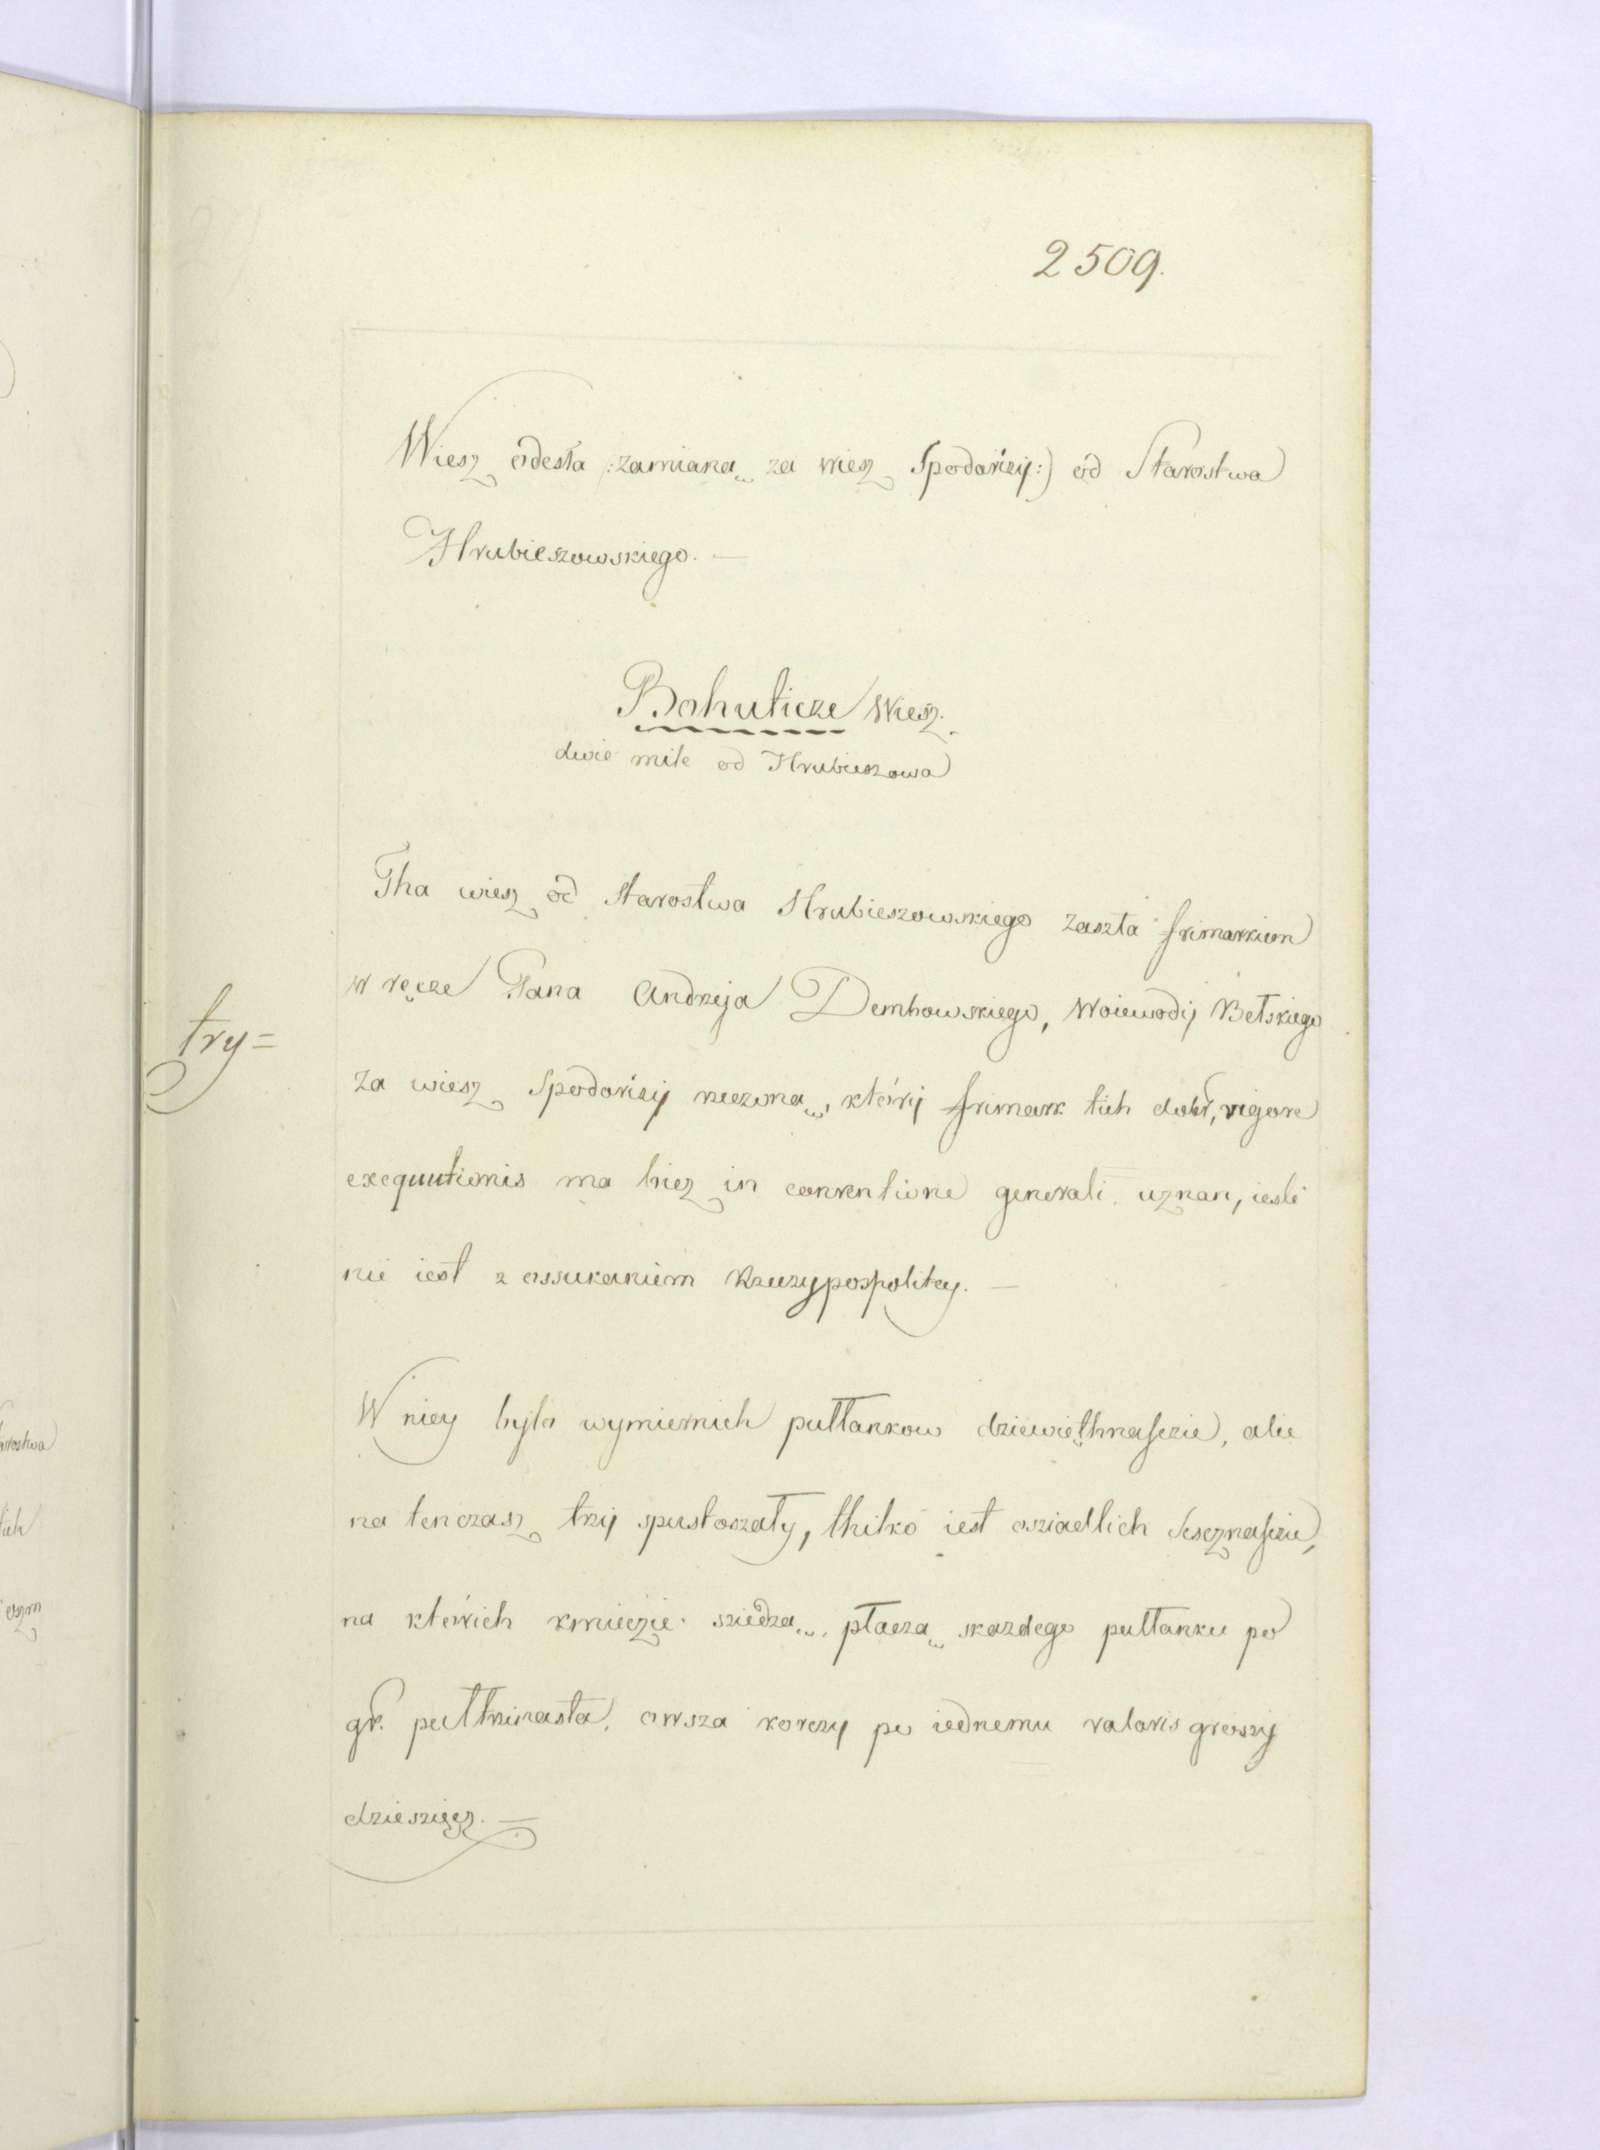 2509.
Wiesz odesła /:zamianą za wiesz Spodańzij:) od Starostwa
Hrubieszowskiego. —
Bohuticze Wiesz.
dwie mile od Hrubieszowa
Tha wiesz od starostwa Hrubieszowskiego zaszła frimarkiem
w ręcze Pana Andrzeja Dembowskiego, Woiewodij Bełskiego
try=
za wiesz Spodańzij rzeczoną, którij frimark tich dobr, vigore
exequutionis ma biez in conventione generali uznan, iesli
nie iest z ossukaniem Rzeczypospolitey. —
W niey było wymiernich pułłankow dziewięthnaſczie, alie
na tenczasz trzy spustoszały, thilko iest osziadlich Sescznaſczie,
na którich kmieczie siedzą, płaczą skazdego pułłanku po
gr. pułtrzinasta, owsza korczy po iednemu valoris groszij
dziesziecz. —
arostwa
tich